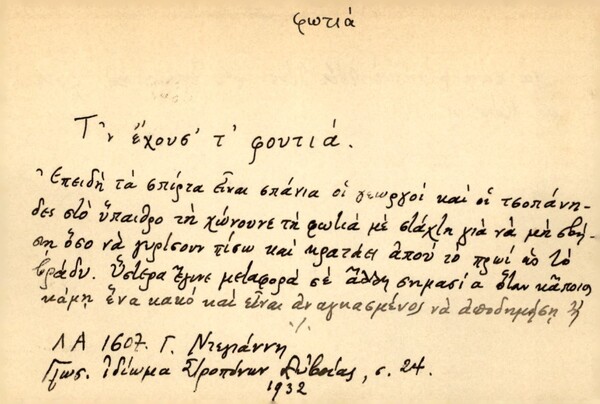 φωτιά
Τ'ν ἔχουσ' τ' φουτιά.
Ἐπειδὴ τὰ σπίρτα εἶναι σπάνια οἱ γεωργοὶ καὶ οἱ τσοπάνη-
δες στὸ ὕπαιθρο τὴ χώνουνε τὴ φωτιὰ μὲ στάχτη γιὰ νὰ μὴ σβή-
ση ὅσο νὰ γυρίσουν πίσω καὶ κρατάει ἀπὸ τὸ πρωὶ ὡς τὸ
βράδυ. Ὕστερα ἔγινε μεταφορὰ σὲ ἄλλη σημασία ὅταν κάποιος
κάμη ἕνα κακὸ καὶ εἶναι ἀναγκασμένος νὰ ἀποδημήση
./.
ΛΑ 1607. Γ. Ντεγιάννη
Γλωσ. ἰδίωμα Στροπόνων Εὐβοίας, σ. 24.
1932